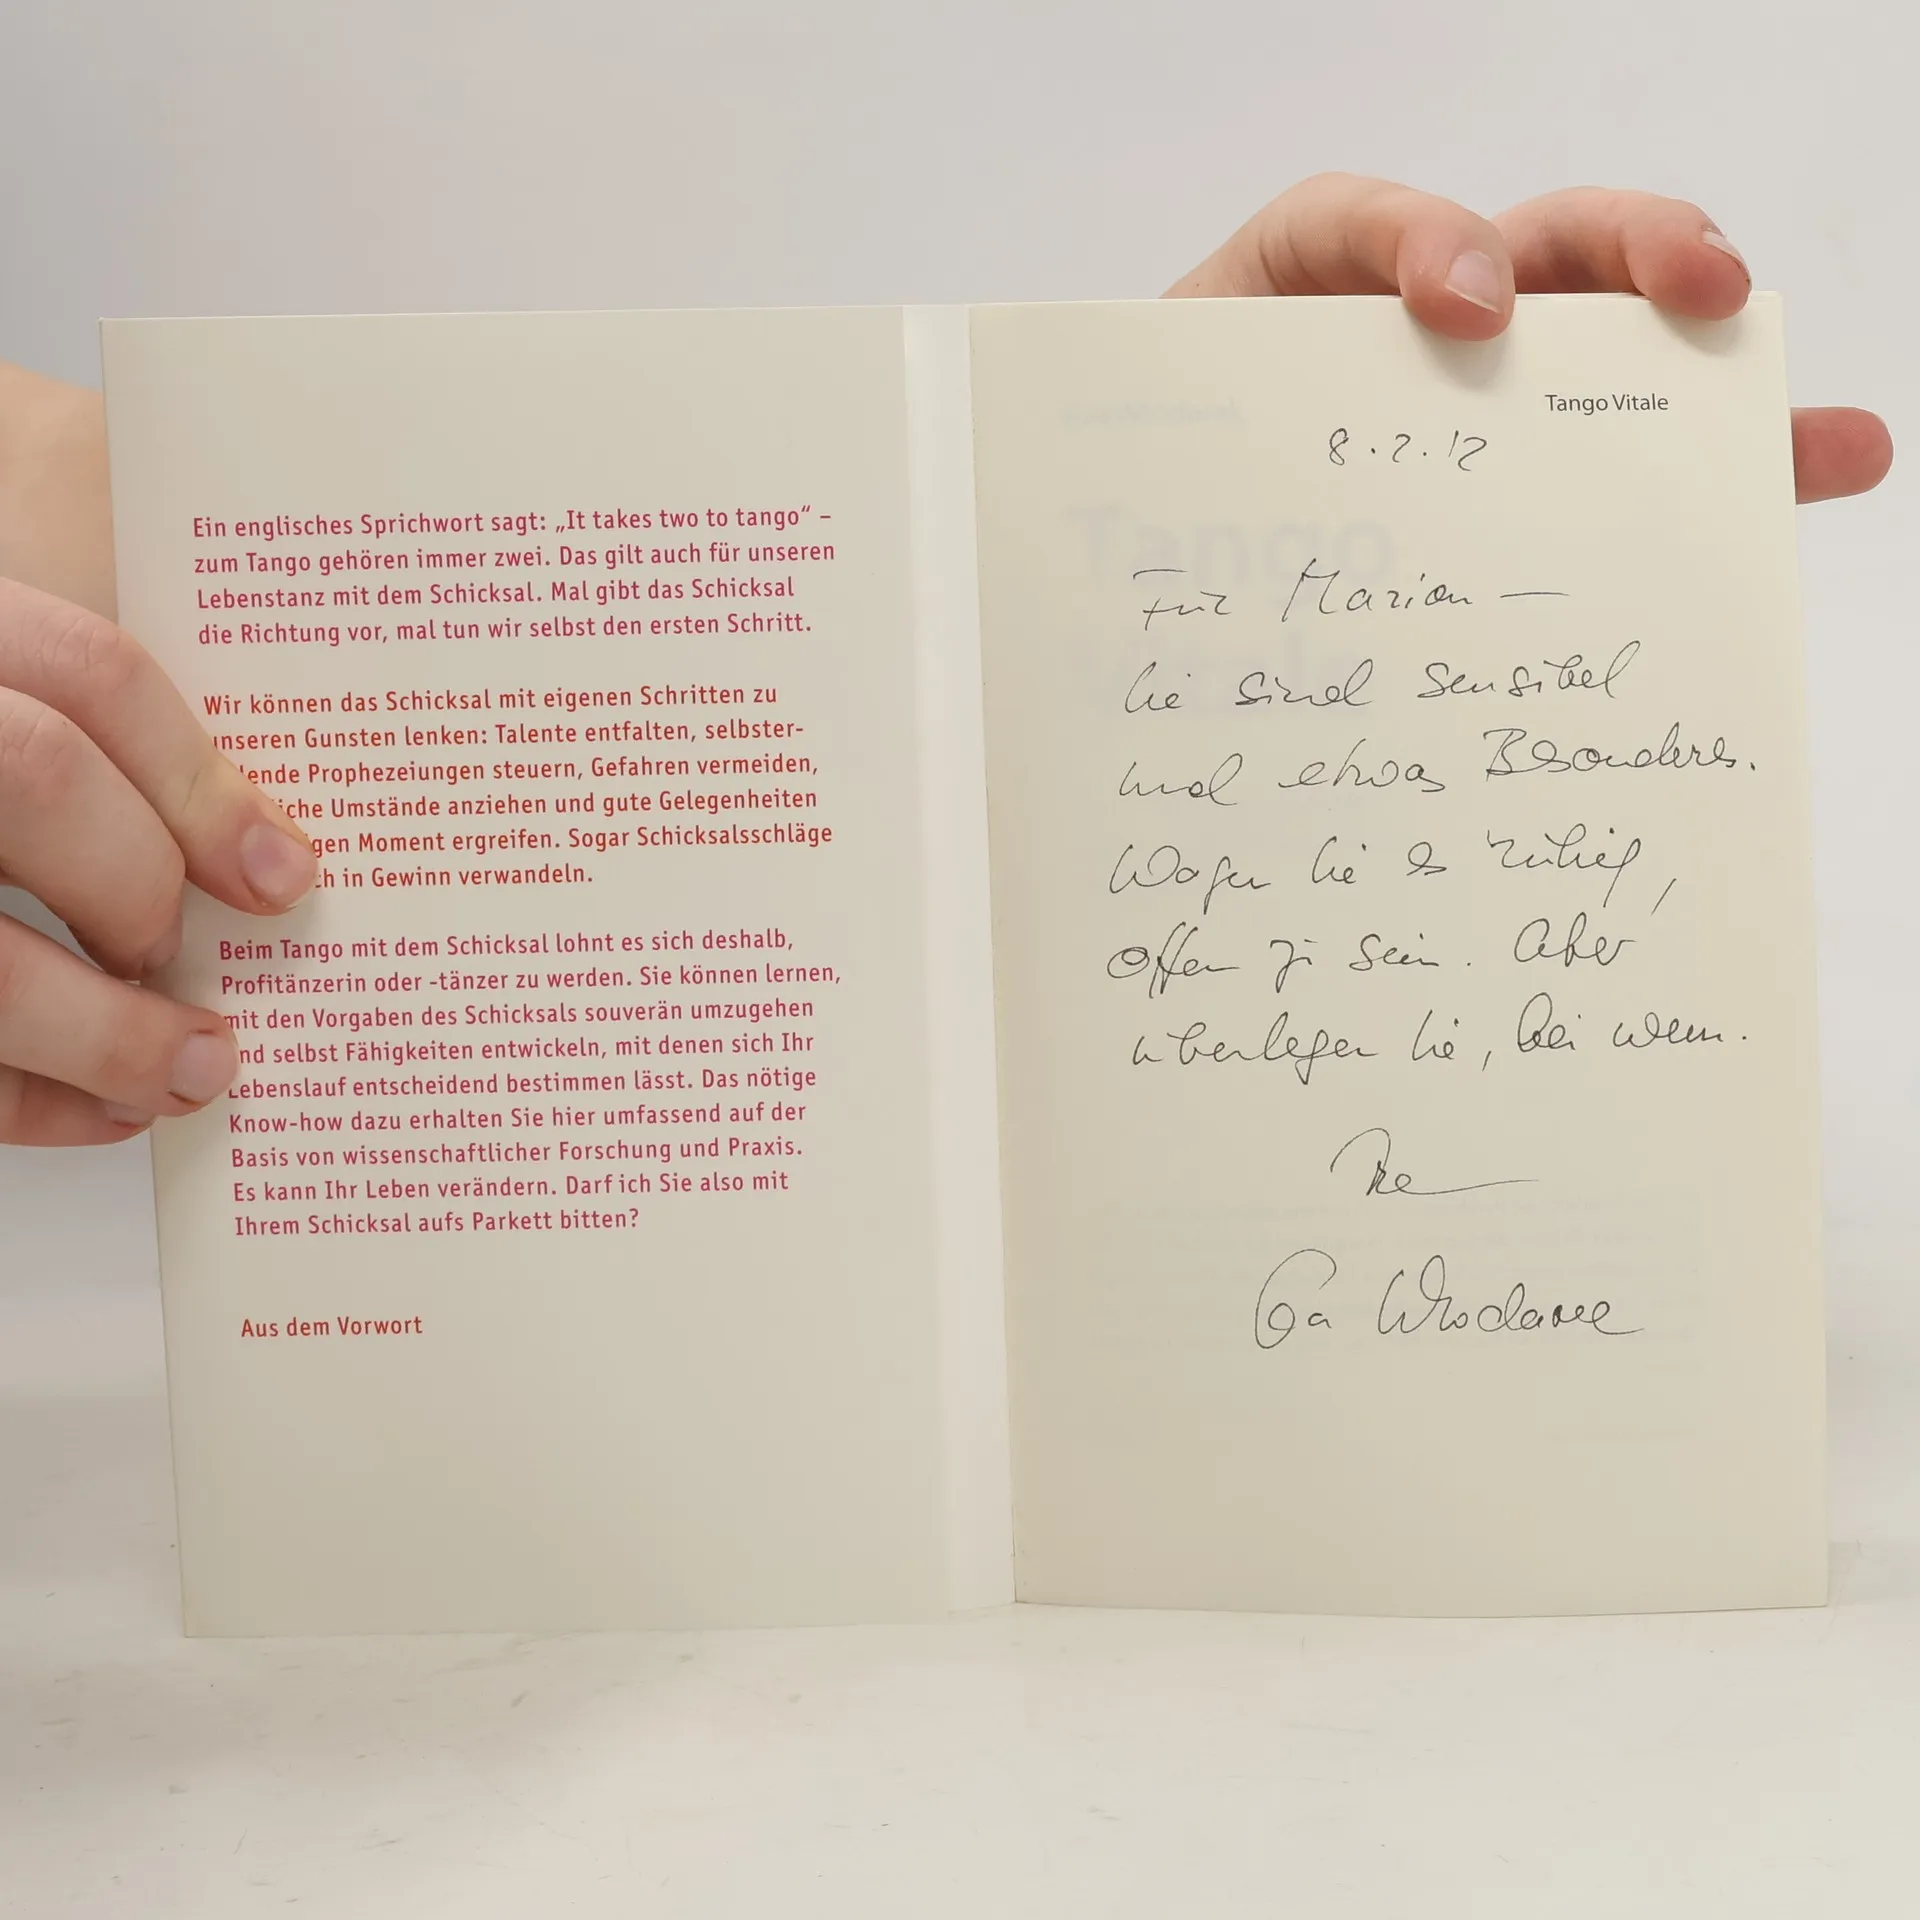 Ein englisches Sprichwort sagt: „It takes two to tango“ –
zum Tango gehören immer zwei. Das gilt auch für unseren
Lebenstanz mit dem Schicksal. Mal gibt das Schicksal
die Richtung vor, mal tun wir selbst den ersten Schritt.
Wir können das Schicksal mit eigenen Schritten zu
unseren Gunsten lenken: Talente entfalten, selbster-
lende Prophezeiungen steuern, Gefahren vermeiden,
iche Umstände anziehen und gute Gelegenheiten
gen Moment ergreifen. Sogar Schicksalsschläge
ch in Gewinn verwandeln.
Beim Tango mit dem Schicksal lohnt es sich deshalb,
Profitänzerin oder -tänzer zu werden. Sie können lernen,
mit den Vorgaben des Schicksals souverän umzugehen
nd selbst Fähigkeiten entwickeln, mit denen sich Ihr
Lebenslauf entscheidend bestimmen lässt. Das nötige
Know-how dazu erhalten Sie hier umfassend auf der
Basis von wissenschaftlicher Forschung und Praxis.
Es kann Ihr Leben verändern. Darf ich Sie also mit
Ihrem Schicksal aufs Parkett bitten?
Aus dem Vorwort
Tango Vitale
8.2.12
Für Marion —
Sie sind sensibel
und etwas Besonderes.
Wagen Sie es ruhig,
offen zu sein. Aber
überlegen Sie, bei wem.
Ihre
Eva Wlodarek